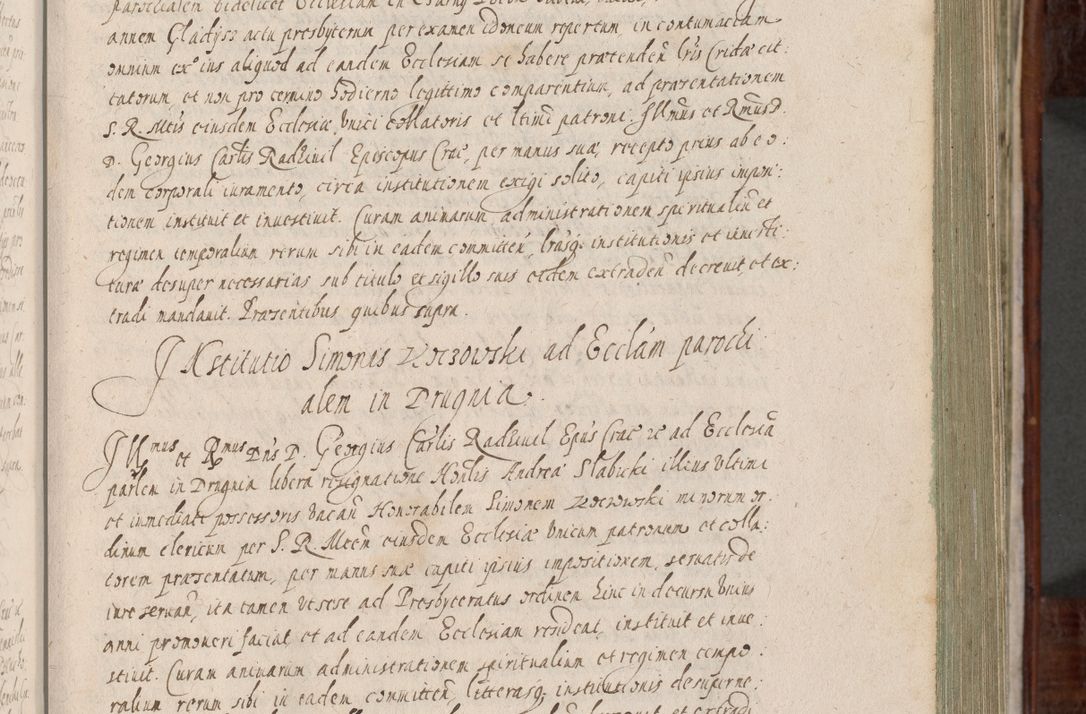 parochialem videlicet Ecclesiam in Czarny
annem Gladysz actu presbyterum per examen idoneum repertum, in contumaciam
omnium ex ͛ ius aliquod ad eandem Ecclesiam se habere prætendeñ l̃ris Cridæ cit:
tatorum, et non pro termino hodierno legittimo comparentium, ad præzentationem
S. R. Mtis eiusdem Ecclesiæ, vnici collatoris et ltimi patroni. Illm̃us et Rm̃us D.
D. Georgius Car̃lis Radziuil Episcopus Crac̃, per manus suæ, recepto prius ab eo:
dem corporali iuramento, circa institutionem exigi solito, capiti ipsius imponi:
tionem instituit et inuestiuit. Curam animarum, administrationem spiritualiũ et
regimen temporalium rerum sibi in eadem committeñ, l̃rasq̃ institutionis et inuesti:
turæ desuper necessarias sub titulo et sigillo suis eidem extradeñ decreuit, et ex:
tradi mandauit. Præsentibus quibus supra.
INstitutio Simonis Koczowski ad Eccl̃am parochi
alem in Drugnia.
Illmus et Rmus Dñs D. Georgius Car̃lis Radziuil Ep̃us Crac̃ &c ad Ecclesiã
par̃lem in Drugnia libera resignatione Hon̄lis Andreæ Slabicki illius vltimi
et inmediati possessoris vacañ Honorabilem Simonem Koczowski minorum or:
dinum clericum per S. R. Mtem eiusdem Ecclesiæ vnicum patronum et colla:
torem præzentatum, per manus suæ capiti ipsius impositionem, seruatis de
iure seruañ, ita tamen vt sese ad Presbyteratus ordinem hinc in decursu vnius
anni promoueri faciat, et ad eandem Ecclesiam resideat, instituit et inue:
stiuit. Curam animarum administrationem spiritualium et regimen tempo:
ralium rerum sibi in eadem committeñ, litterasq̃ institutionis desuper ne: